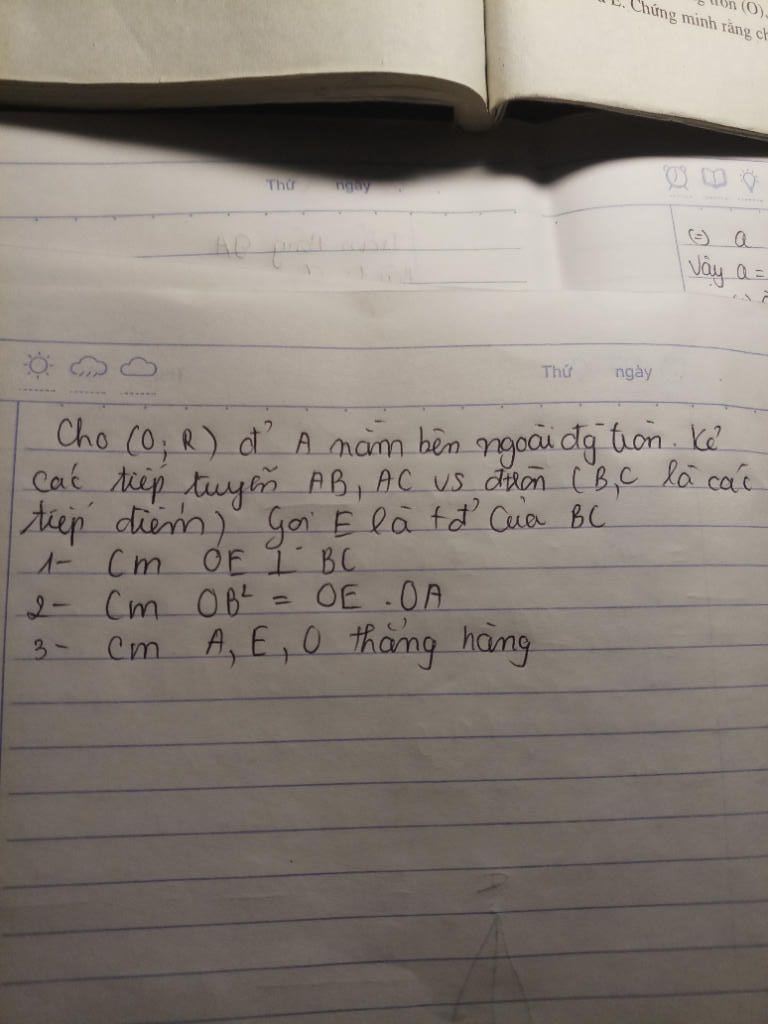 E. Chứng minh rằng
Thứ ngày
(=) a
Vậy a =
Thứ ngày
Cho (O; R) đ' A nằm bên ngoài đg tròn. Kẻ
các tiếp tuyến AB, AC vs đtròn (B,C là các
tiếp điểm) Gọi E là tđ' của BC
1- Cm OE ⊥ BC
2- Cm OB² = OE . OA
3- Cm A, E, O thẳng hàng